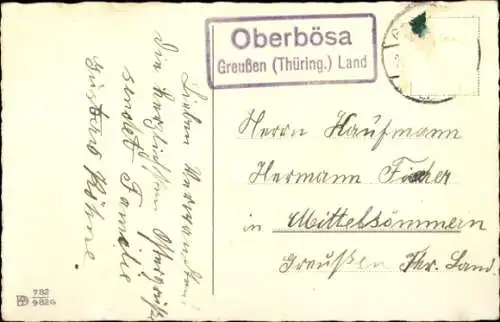 Oberbösa
Greußen (Thüring.) Land
Lieben Verwandten!
Die herzlichsten Ostergrüße
sendet Familie
Gustav Köhne.
Herrn Kaufmann
Hermann Fischer
in Mittelsömmern
Greußen Thr. Land.
782
9826